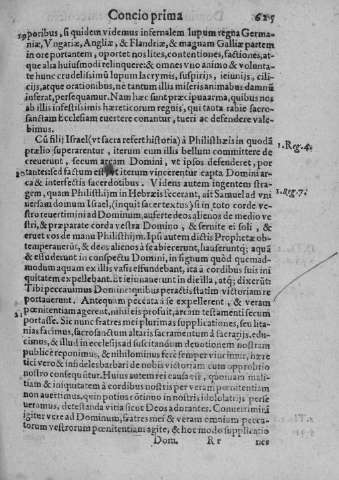 Concio prima 625
poribus, si quidem videmus infernalem lupum regna Germa-
niæ, Vngariæ, Angliæ, & Flandriæ, & magnam Galliæ partem
in ore portantem, oportet nos lites, contentiones, factiones, at-
que alia huiusmodi relinquere: & omnes vno animo & volunta-
te hunc crudelissimũ lupum lacrymis, suspirijs, ieiunijs, cili-
cijs, atque orationibus, ne tantum illis miseris animabus damnũ
inferat, persequamur. Nam hæ sunt præcipua arma, quibus nos
ab illis infestissimis hæreticorum regnis, qui tota rabie sacro-
sanctam Ecclesiam euertere conantur, tueri ac defendere vale-
bimus.
Cũ filij Israel (vt sacra refert historia) à Philisthæis in quodã
prælio superarentur, iterum cum illis bellum committere de-
creuerunt, secum arcam Domini, vt ipsos defenderet, por
tantes: sed factum est, vt iterum vincerentur capta Domini ar-
ca & interfectis sacerdotibus. Videns autem ingentem stra-
gem, quam Philisthijm in Hebræis fecerant, ait Samuel ad vni
uersam domum Israel, (inquit sacer textus) si in toto corde ve-
stro reuertimini ad Dominum, auferte deos alienos de medio ve
stri, & præparate corda vestra Domino, & seruite ei soli, &
eruet vos de manu Philisthijm. Ipsi autem dictis Prophetæ ob-
temperauerũt, & deos alienos à se abiecerunt, hauseruntq; aquã
& effuderunt in conspectu Domini, in signum quòd quemad-
modum aquam ex illis vasis effundebant, ita à cordibus suis ini
quitatem expellebant. Et ieiunauerunt in die illa, atq; dixerũt:
Tibi peccauimus Domine: quibus peractis statim victoriam re
portauerunt. Antequam peccata à se expellerent, & veram
pœnitentiam agerent, nihil eis profuit, arcam testamenti secum
portasse. Sic nunc fratres mei plurimas supplicationes, seu lita-
nias facimus, sacrosanctum altaris sacramentum à sacrarijs, edu-
cimus, & illud in ecclesijs ad suscitandum deuotionem nostram
publicè reponimus, & nihilominus ferè semper viuimur, hære
tici verò & infideles barbari de nobis victoriam cum opprobrio
nostro consequũtur. Huius autem rei causa est, quoniam mali-
tiam & iniquitatem à cordibus nostris per veram pœnitentiam
non auertimus, quin potius
veramus, detestanda vitia sicut Deos adorantes. Conuertimini
igitur vere ad Dominum, fratres mei & veram omnium pecca-
torum vestrorum pœnitentiam agite, & hoc modo supplicatio
Dom. R r nes
1. Reg. 4.
1. Reg. 7.